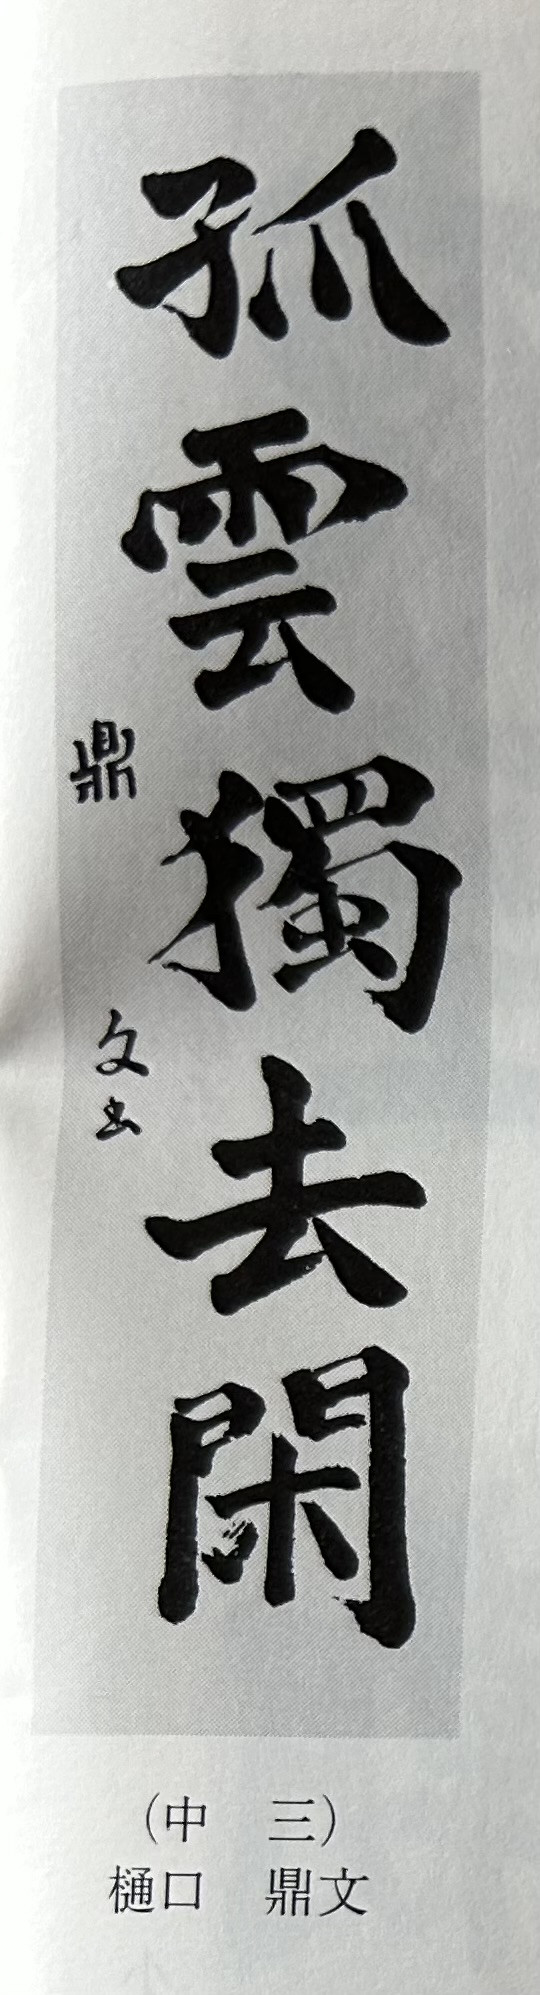 孤雲獨去閑
鼎文书
(中 三)
樋口 鼎文